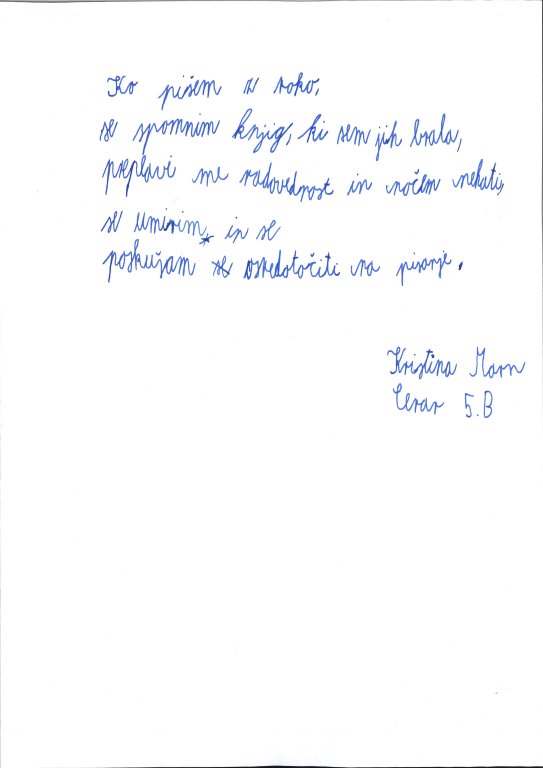 Ko pišem z roko,
se spomnim knjig, ki sem jih brala,
preplavi me radovednost in nočem nehati,
se umirim, in se
poskušam se osredotočiti na pisanje.
Kristina Marn
Cerar 5.B